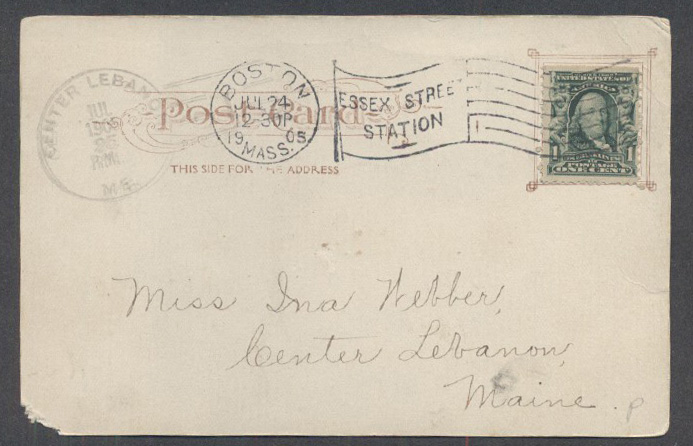 CENTER LEBAN
JUL
25
1905
M E.
BOSTON
JUL 24
12-30P
1905
MASS.
ESSEX STREET
STATION
1
Post Card
THIS SIDE FOR THE ADDRESS
UNITED STATES OF
1 1
POSTAGE
ONE CENT
Miss Ina Webber,
Center Lebanon,
Maine.
P